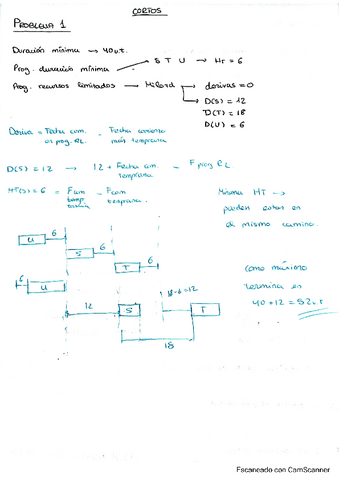 CORTOS
PROBLEMA 1
Duración mínima → 40 u.t.
Prog. duración mínima → S T U → HT = 6
Prog. recursos limitados → Milord → derivas = 0
D(S) = 12
D(T) = 18
D(U) = 6
Deriva = Fecha com. en prog. RL - Fecha comienzo más temprana
D(S) = 12 → 12 + Fecha com. temprana - F prog RL
HT(S) = 6 = F com temp. tardía - F com temprana.
Misma HT →
pueden estar en
el mismo camino.
U 6
S 6
T 6
6 U
12 S
18-6=12 T
18
como máximo
termina en
40+12=52 u.t
Escaneado con CamScanner